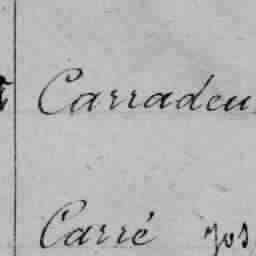 Carradeu
Carré Jos